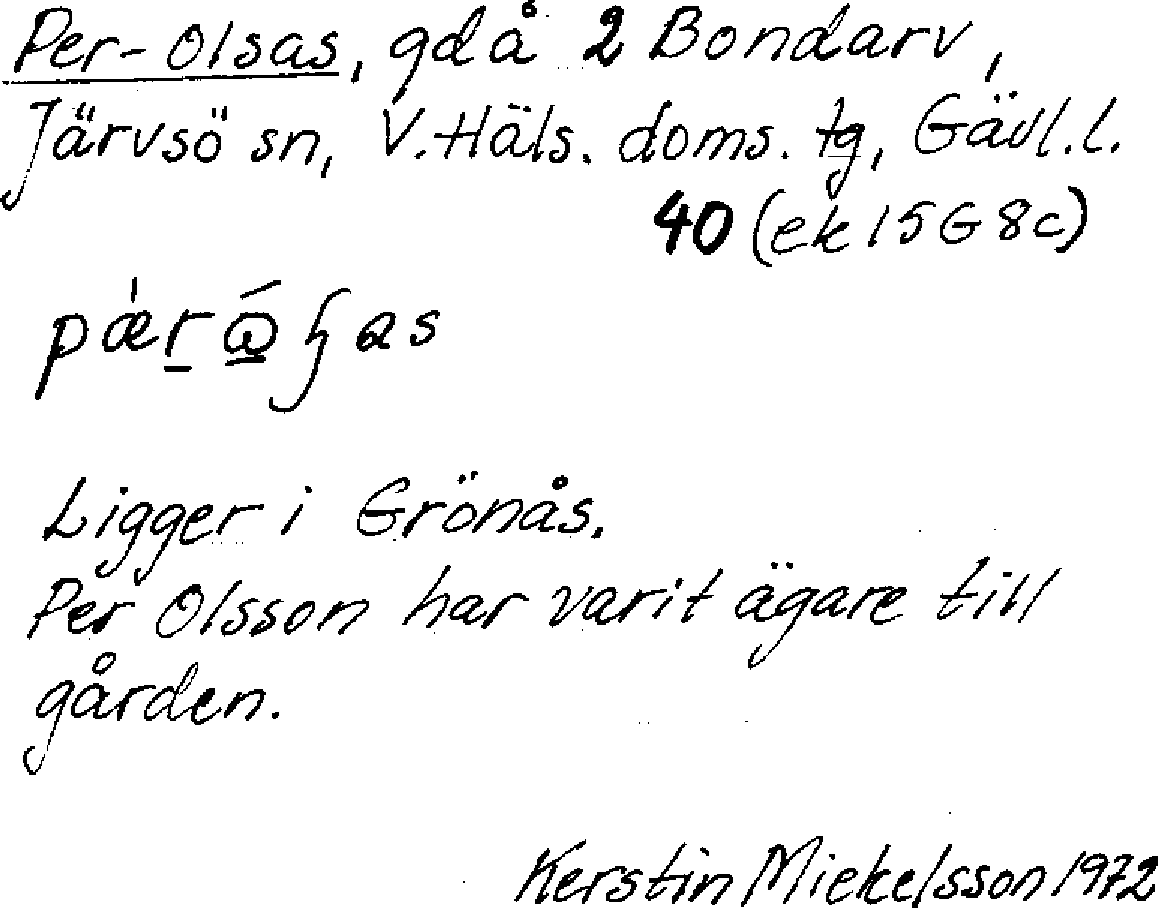 Per-Olsas, gd å 2 Bondarv,
Järvsö sn, V. Häls. doms. tg, Gävl. l.
40 (ek 15 G 8c)
Ligger i Grönås.
Per Olsson har varit ägare till
gården.
Kerstin Mickelsson 1972